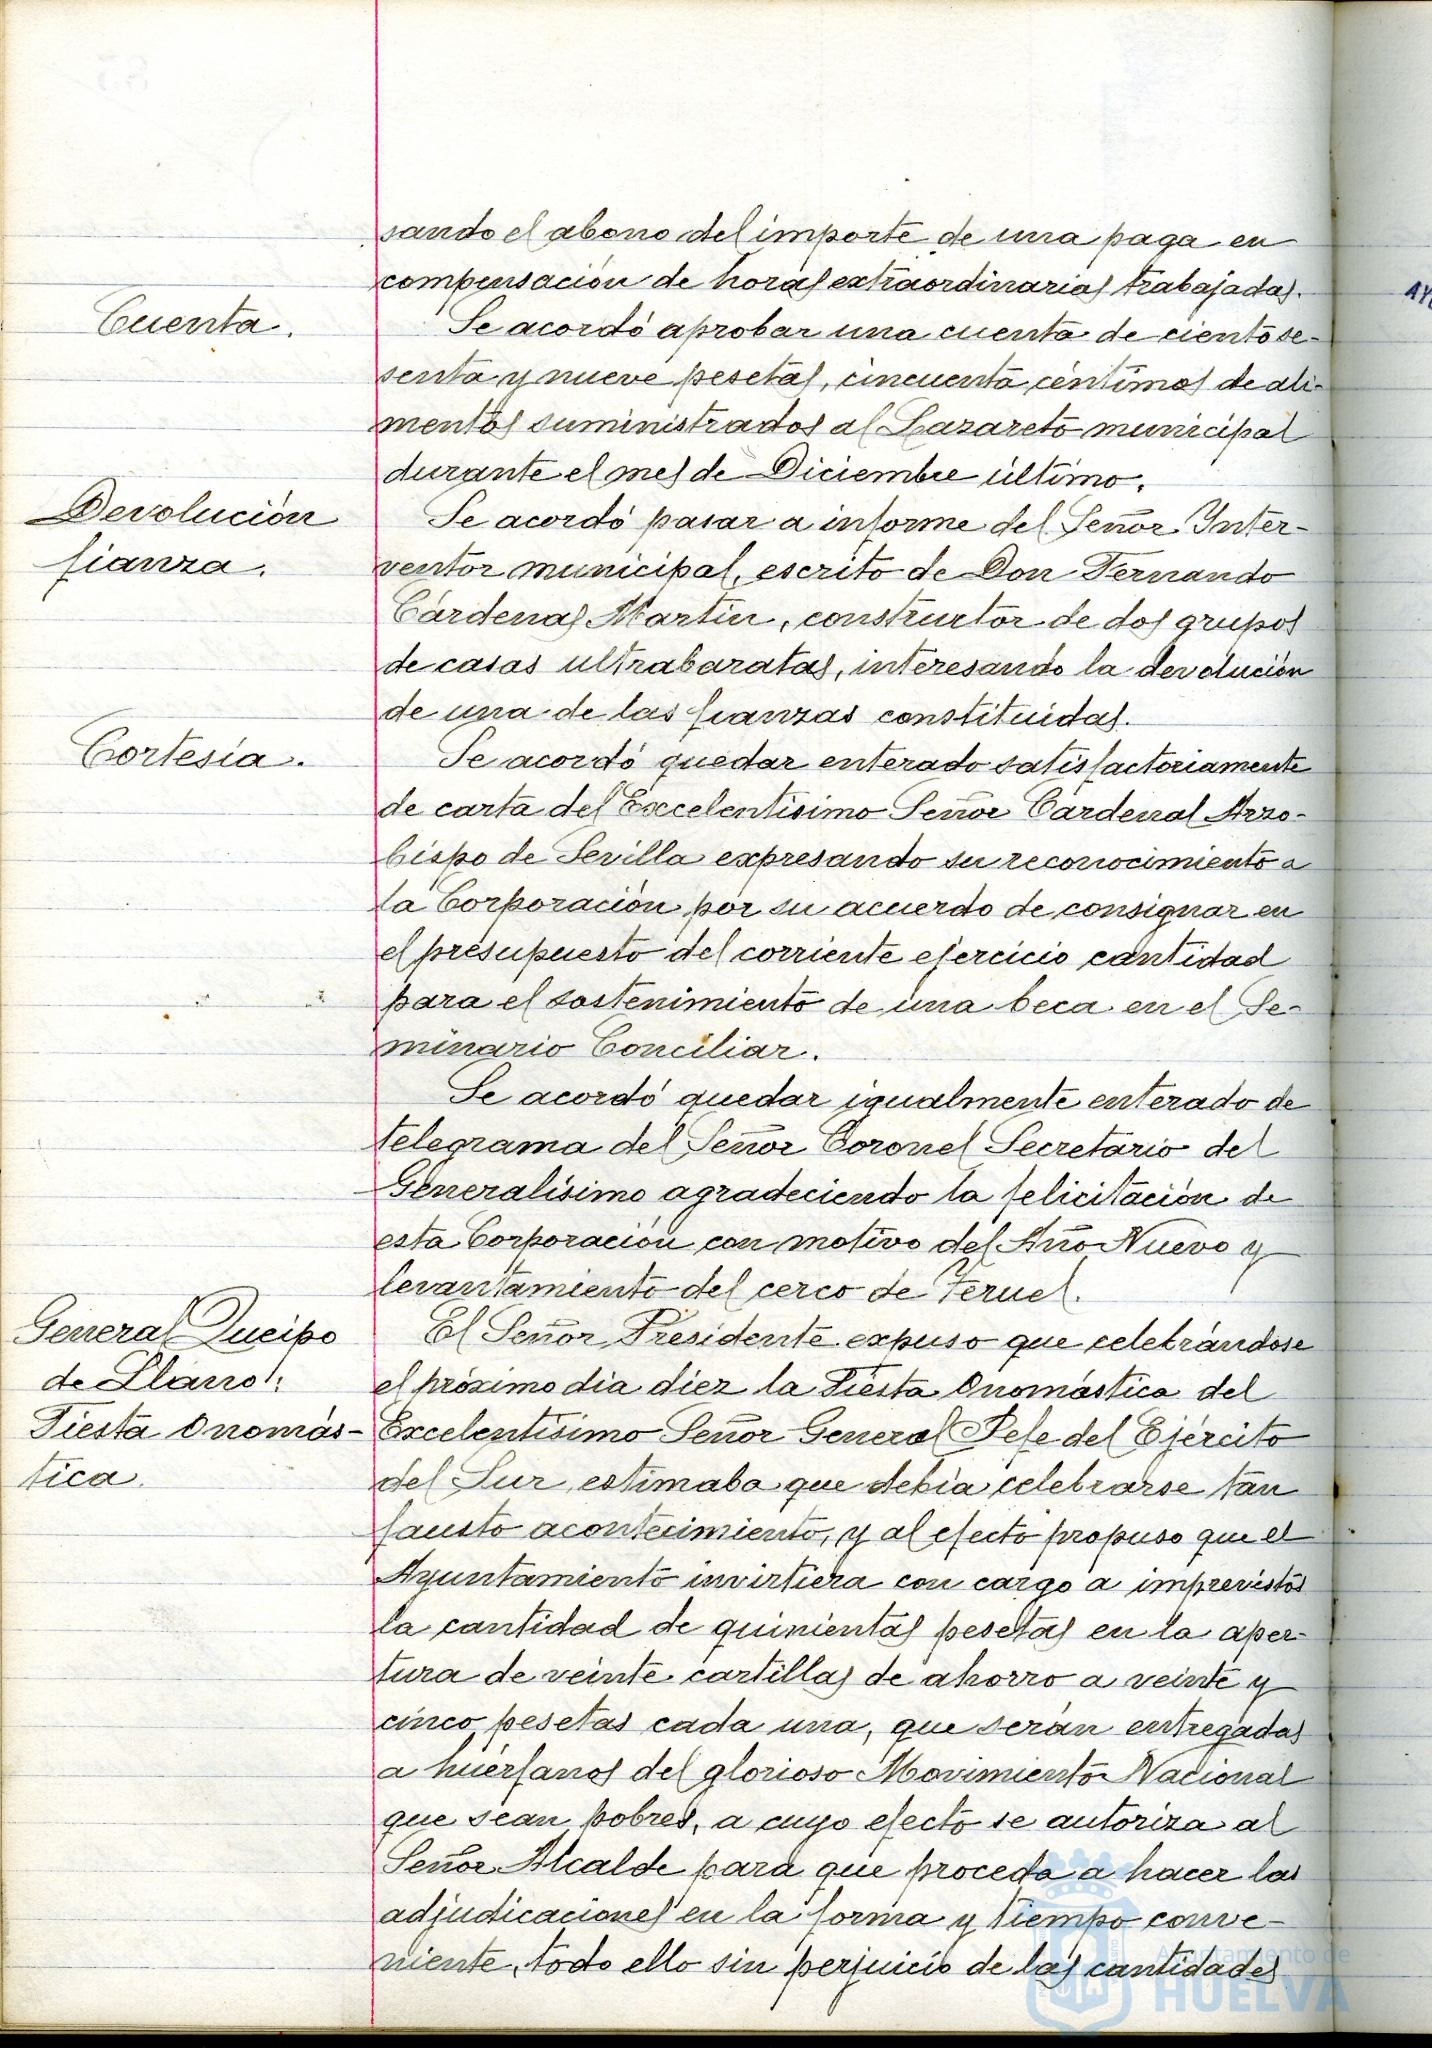 sando el abono del importe de una paga en
compensación de horas extraordinarias trabajadas.
Cuenta.
Se acordó aprobar una cuenta de ciento se-
senta y nueve pesetas, cincuenta céntimos de ali-
mentos suministrados al Lazareto municipal
durante el mes de Diciembre último.
Devolución
fianza.
Se acordó pasar a informe del Señor Inter-
ventor municipal, escrito de Don Fernando
Cárdenas Martín, constructor de dos grupos
de casas ultrabaratas, interesando la devolución
de una de las fianzas constituidas.
Cortesía.
Se acordó quedar enterado satisfactoriamente
de carta del Excelentísimo Señor Cardenal Arzo-
bispo de Sevilla expresando su reconocimiento a
la Corporación por su acuerdo de consignar en
el presupuesto del corriente ejercicio cantidad
para el sostenimiento de una beca en el Se-
minario Conciliar.
Se acordó quedar igualmente enterado de
telegrama del Señor Coronel Secretario del
Generalísimo agradeciendo la felicitación de
esta Corporación con motivo del Año Nuevo y
levantamiento del cerco de Teruel.
General Queipo
de Llano:
Fiesta Onomás-
tica.
El Señor Presidente expuso que celebrándose
el próximo día diez la Fiesta Onomástica del
Excelentísimo Señor General Jefe del Ejército
del Sur, estimaba que debía celebrarse tan
fausto acontecimiento, y al efecto propuso que el
Ayuntamiento invirtiera con cargo a imprevistos
la cantidad de quinientas pesetas en la aper-
tura de veinte cartillas de ahorro a veinte y
cinco pesetas cada una, que serán entregadas
a huérfanos del glorioso Movimiento Nacional
que sean pobres, a cuyo efecto se autoriza al
Señor Alcalde para que proceda a hacer las
adjudicaciones en la forma y tiempo conve-
niente, todo ello sin perjuicio de las cantidades
Ayuntamiento de
HUELVA